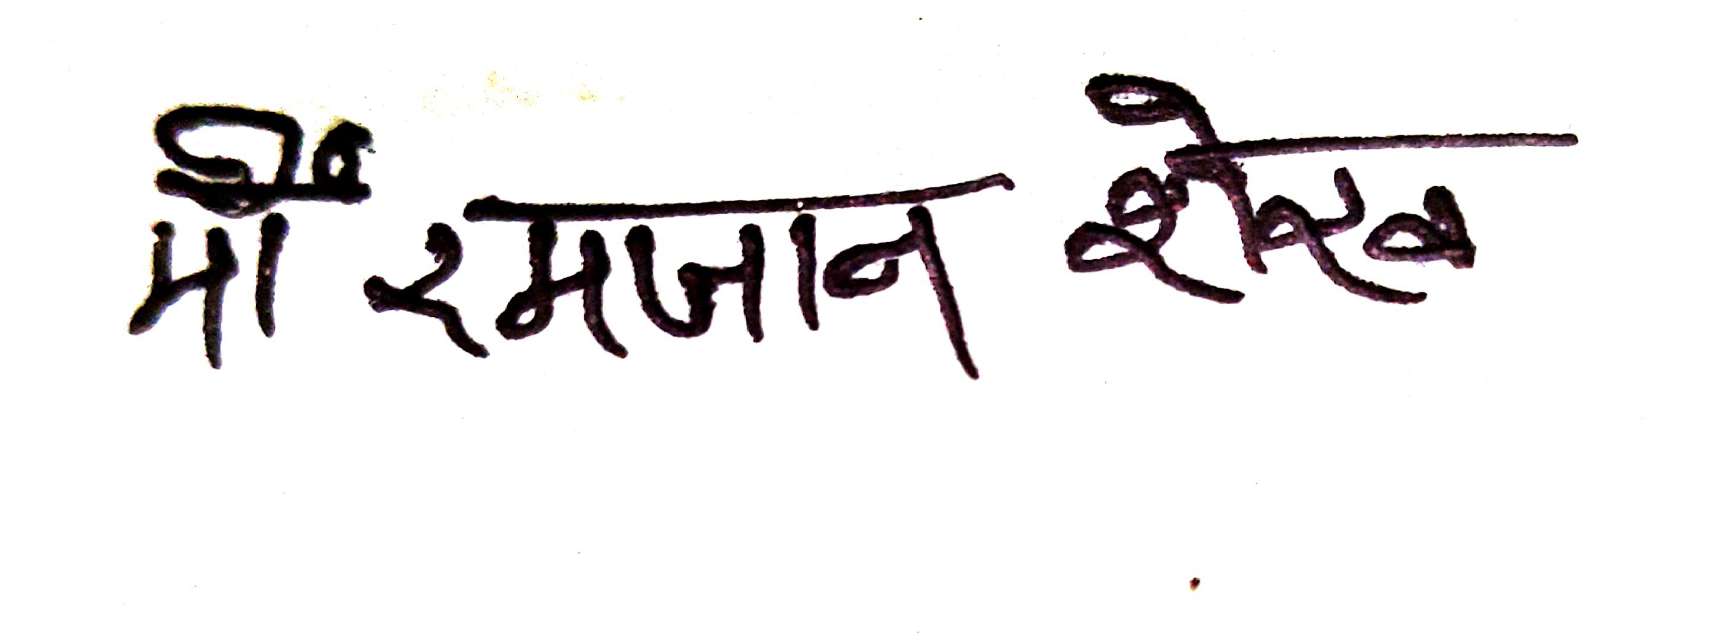 मो॰ रमजान शेख